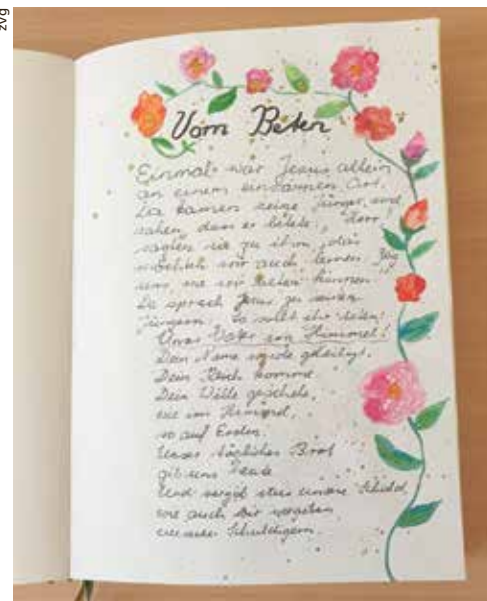 zvg
Vom Beten
Einmal war Jesus allein
an einem einsamen Ort.
Da kamen seine Jünger und
sahen, dass er betete. "Herr"
sagten sie zu ihm, "das
möchten wir auch lernen. Zeig
uns, wie wir beten können."
Da sprach Jesus zu seinen
Jüngern: So sollt ihr beten:
Unser Vater im Himmel!
Dein Name werde geheiligt.
Dein Reich komme.
Dein Wille geschehe,
wie im Himmel,
so auf Erden.
Unser tägliches Brot
gib uns heute
Und vergib uns unsere Schuld,
wie auch wir vergeben
unseren Schuldigern.